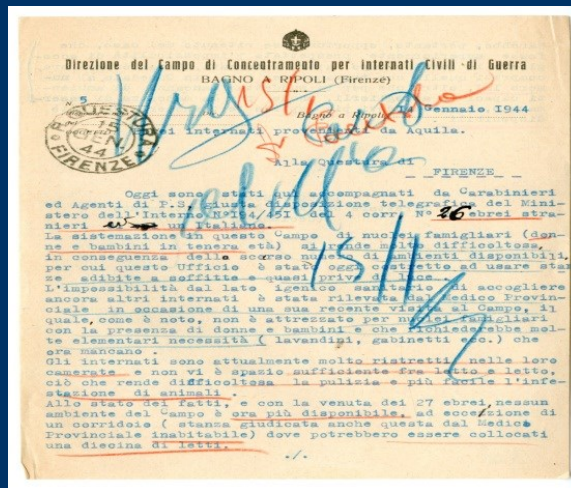 Direzione del Campo di Concentramento per internati Civili di Guerra
BAGNO A RIPOLI (Firenze)
N° 5
Bagno a Ripoli 14 Gennaio 1944
R. QUESTURA
15 GEN. 44
FIRENZE
Ebrei internati provenienti da Aquila.
Alla Questura di
FIRENZE
Urgente
Oggi sono stati qui accompagnati da Carabinieri
ed Agenti di P.S. giusta disposizione telegrafica del Mini-
stero dell'Interno N° 4/451 del 4 corr. N° 26 ebrei stra-
nieri ed un Italiano.
La sistemazione in questo Campo di nuclei famigliari (don-
ne e bambini in tenera età) si rende molto difficoltosa,
in conseguenza dello scarso numero di ambienti disponibili,
per cui questo Ufficio è stato oggi costretto ad usare stan
ze adibite a soffitte e quasi prive di luce.
L'impossibilità dal lato igenico sanitario di accogliere
ancora altri internati è stata rilevata dal Medico Provin-
ciale in occasione di una sua recente visita al Campo, il
quale, come è noto, non è attrezzato per nuclei famigliari
con la presenza di donne e bambini e che richiederebbe mol-
te elementari necessità ( lavandini, gabinetti ecc.) che
ora mancano.
Gli internati sono attualmente molto ristretti nelle loro
camerate e non vi è spazio sufficiente fra letto e letto,
ciò che rende difficoltosa la pulizia e più facile l'infe-
stazione di animali.
Allo stato dei fatti, e con la venuta dei 27 ebrei, nessun
ambiente del Campo è ora più disponibile, ad eccezione di
un corridoio ( stanza giudicata anche questa dal Medico
Provinciale inabitabile) dove potrebbero essere collocati
una diecina di letti.
./.